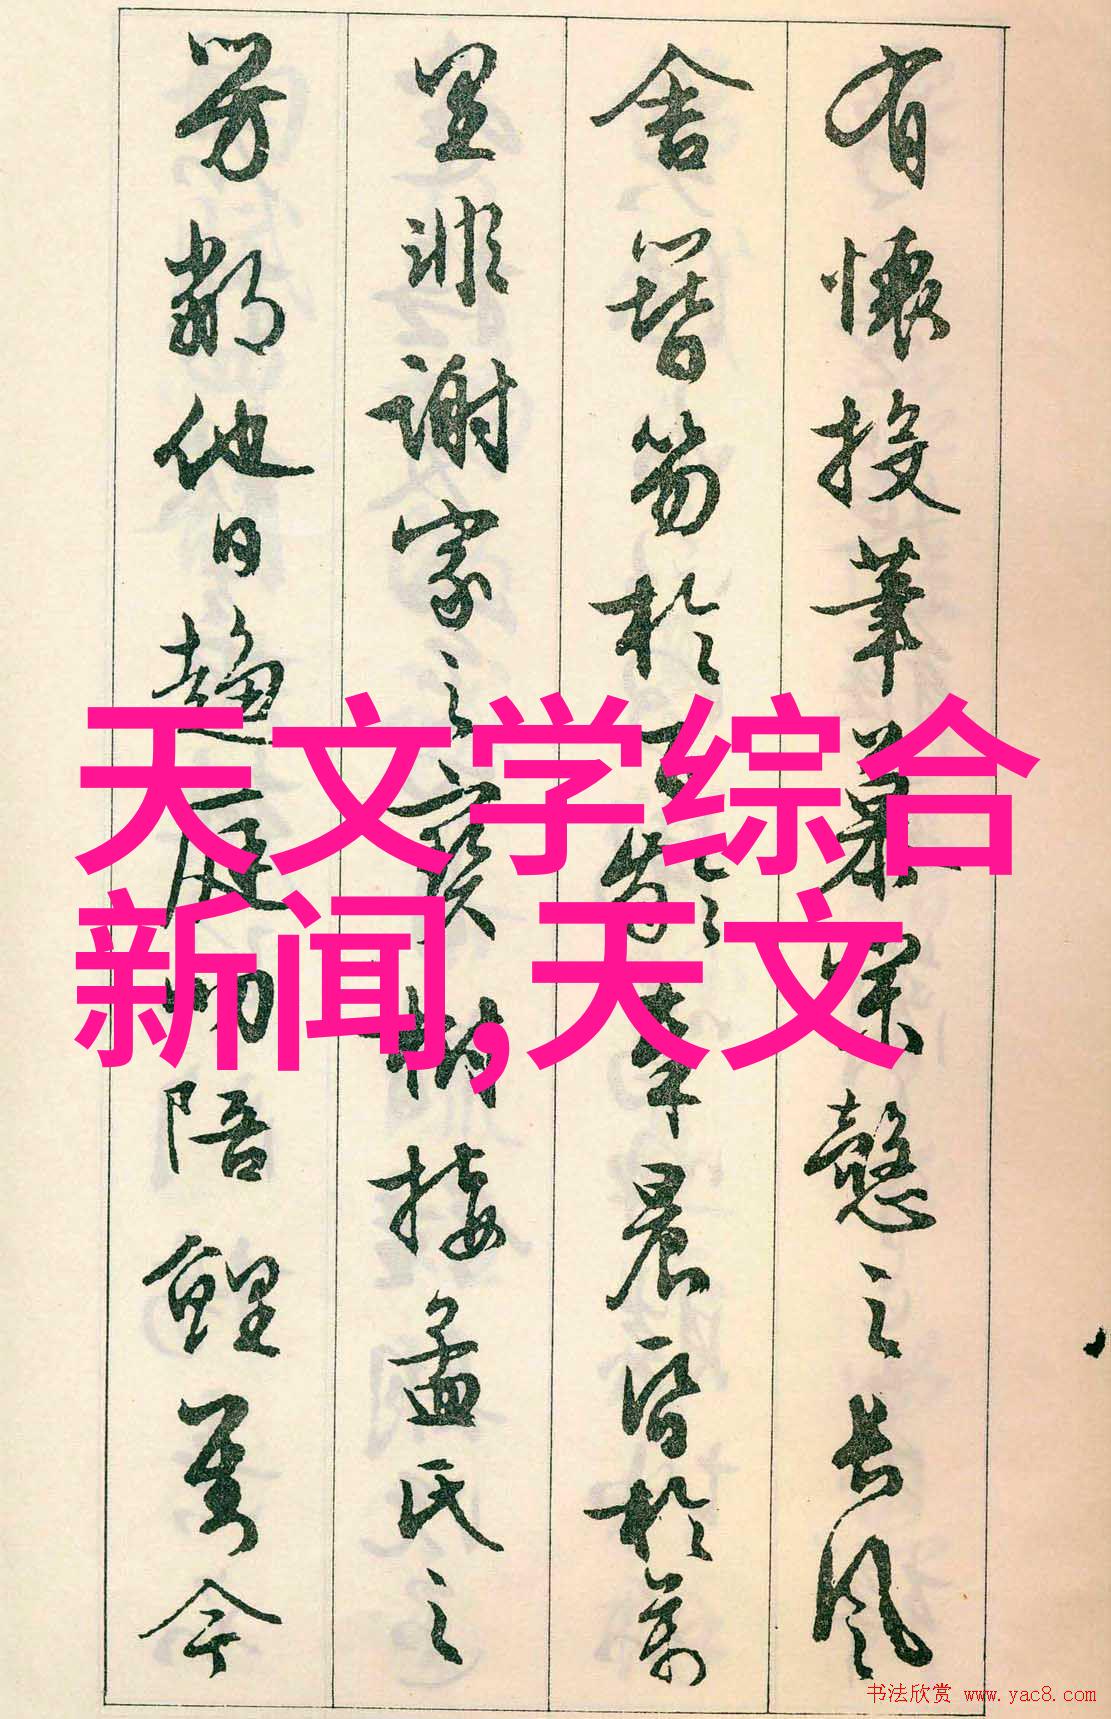 有懷投筆慕宗愨之長風
舍簪笏於百齡奉晨昏於萬
里非謝家之寶樹接孟氏之
芳鄰他日趨庭叨陪鯉對今
天文学综合
新闻,天文
书法欣赏 www.yac8.com